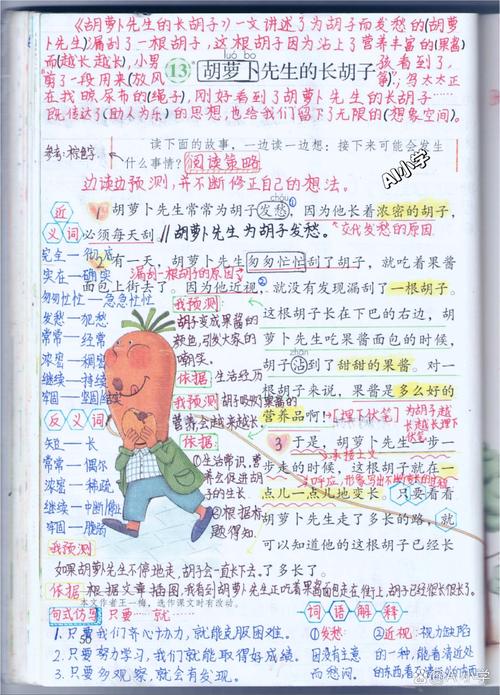 《胡萝卜先生的长胡子》一文讲述了为胡子而发愁的(胡萝
卜先生)漏刮了一根胡子,这根胡子因为沾上了营养丰富的(果酱)
而(越长越长),小男孩看到了,
剪了一段用来(放风筝);鸟太太正
在找晾尿布的(绳子),刚好看到了胡萝卜先生的长胡子……
既传达了(助人为乐)的思想,也给我们留下了无限的(想象空间)。
luó bo
13 胡萝卜先生的长胡子
读下面的故事,一边读一边想:接下来可能会发生
什么事情?
阅读策略
AI小学
边读边预测,并不断修正自己的想法。
近义词
完全—彻底
实在—确实
匆匆忙忙—急急忙忙
发愁—犯愁
常常—经常
浓密—稠密
继续—持续
牢固—坚固
反义词
短—长
常常—偶尔
浓密—稀疏
继续—中断
牢固—脆弱
chóu
1 胡萝卜先生常常为胡子发愁①,因为他长着浓密的胡子,
必须每天刮。//胡萝卜先生为胡子发愁。
交代发愁的原因
2 有一天,胡萝卜先生匆匆忙忙刮了胡子,就吃着果酱
漏刮一根胡子的原因
面包上街去了。因为他近视②,就没有发现漏刮了一根胡子。
这根胡子长在下巴的右边,胡
萝卜先生吃果酱面包的时候,
zhān
胡子沾到了甜甜的果酱。对一
根胡子来说,果酱是多么好的
营养品啊!
[埋下伏笔]
为胡子越长越长埋下伏笔
我预测
胡子变成果酱的
颜色,引发大家的
嘲笑。
依据 生活经历
我预测 胡子吸收了果酱的
营养会越来越长。
依据
①生活常识,营养会促进胡子的生长
②根据标题得知。
3 于是,胡萝卜先生一步一
承接上文
步走的时候,这根胡子就在一
点儿一点儿地变长。只要看看
胡萝卜先生走了多长的路,就
可以知道他的这根胡子已经长
了多长了。
我预测
如果胡萝卜先生不停地走,胡子会一直长下去。
依据 根据文章插图,我看到胡萝卜先生正吃着果酱面包走在街上,胡子已经很长很长了。
本文作者王一梅,选作课文时有改动。
句式仿写 只要……就……
50
1.只要我们齐心协力,就能克服困难。
2.只要努力学习,我们就能取得好成绩。
3.只要多观察,就会有发现。
词语解释
①发愁:因没有主意而愁闷。
②近视:视力缺陷的一种,能看清近处的东西看不清远处的东西